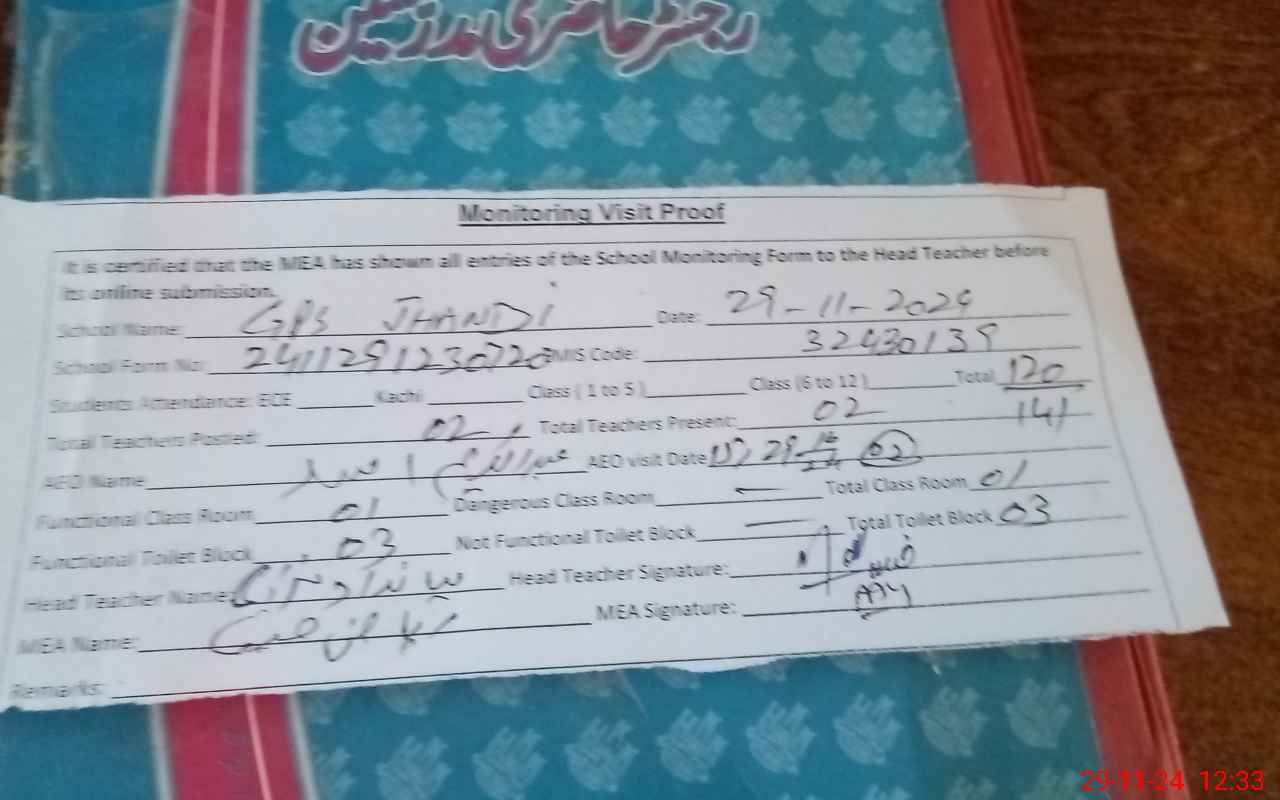 رجسٹر حاضری مدرسین
Monitoring Visit Proof
It is certified that the MEA has shown all entries of the School Monitoring Form to the Head Teacher before
its online submission.
School Name: GPS JHANDI Date: 29-11-2024
School Form No: 241129123072 EMIS Code: 32430139
Students Attendance: ECE Kachi Class ( 1 to 5 ) Class (6 to 12 ) Total 120
141
Total Teachers Posted: 02 Total Teachers Present: 02
AEO Name AEO visit Date 29 02
Functional Class Room 01 Dangerous Class Room — Total Class Room 01
Functional Toilet Block 03 Not Functional Toilet Block — Total Toilet Block 03
Head Teacher Name Head Teacher Signature:
MEA Name: MEA Signature:
Remarks:
29-11-24 12:33